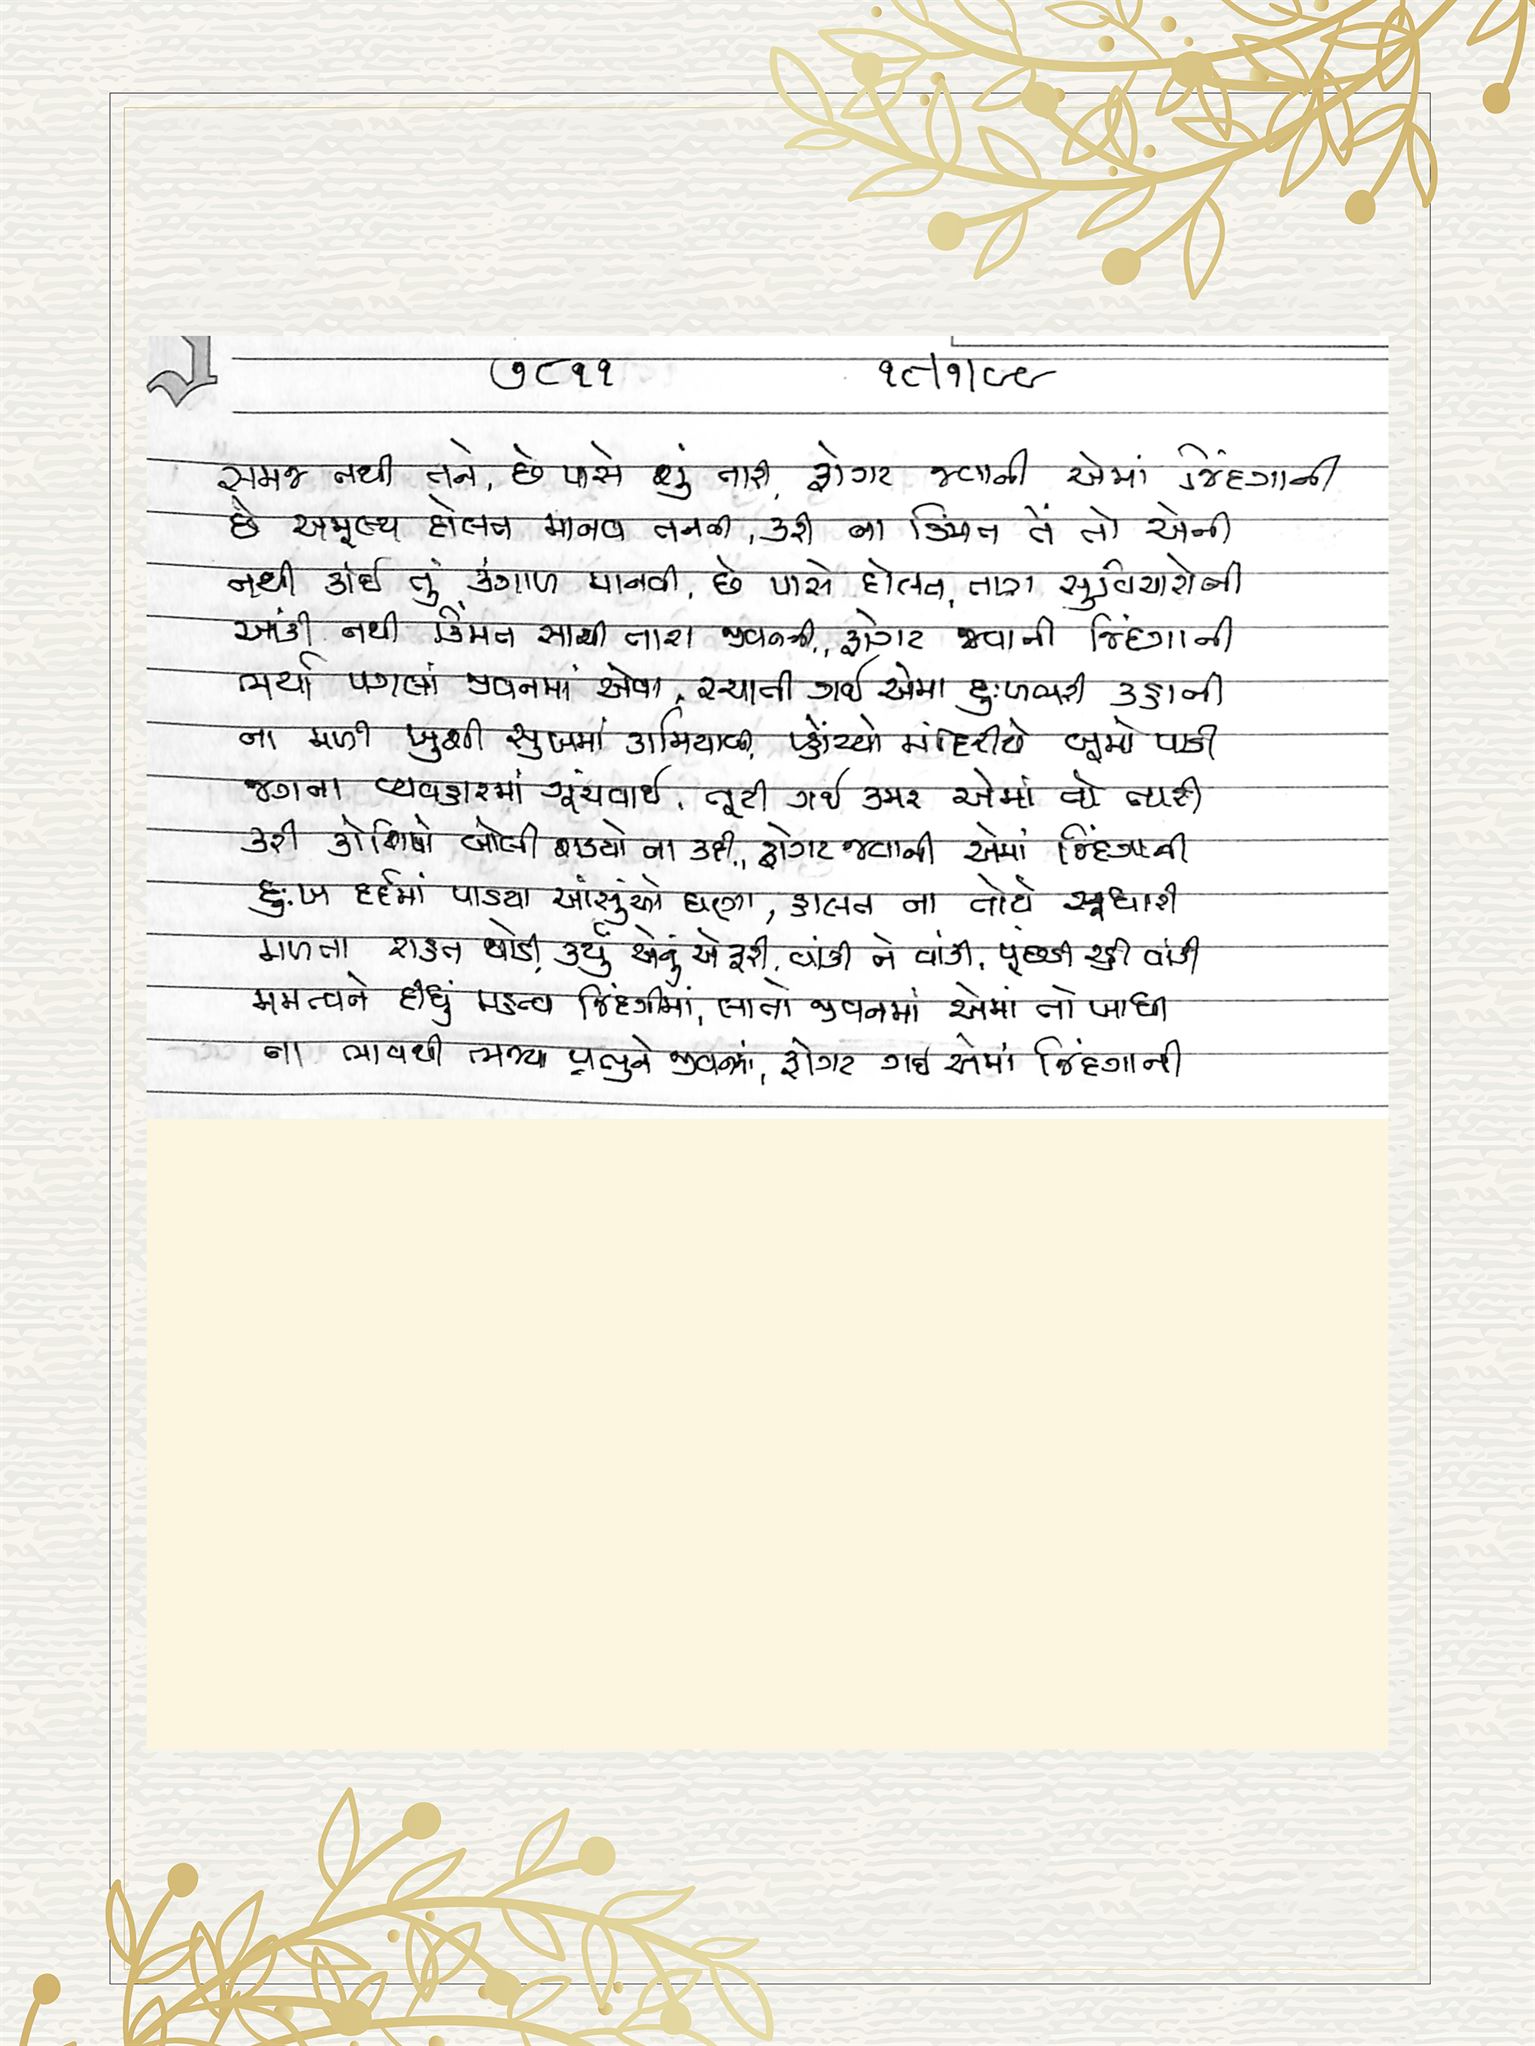 ૭૮૧૧ ૧૯/૧/૯૯
સમજ નથી તને, છે પાસે શું તારી, ફોગટ જવાની એમાં જિંદગાની
છે અમૂલ્ય દોલત માનવ તનની, કરી ના કિંમત તેં તો એની
નથી કાંઈ તું કંગાળ માનવી, છે પાસે દોલત, તારા સુવિચારોની
આંકી નથી કિંમત સાચી તારા જીવનની, ફોગટ જવાની જિંદગાની
ભર્યા પગલાં જીવનમાં એવા, રચાતી ગઈ એમા દુઃખભરી કહાની
ના મળી ખુશી સુખમાં કામિયાબી, પ્હોંચ્યો મંદિરીયે બૂમો પાડી
જગના વ્યવહારમાં ગૂંચવાઈ, તૂટી ગઈ કમર એમાં તો તારી
કરી કોશિષો બોલી શક્યો ના કદી, ફોગટ જવાની એમાં જિંદગાની
દુઃખ દર્દમાં પાડયા આંસુંઓ ઘણા, હાલત ના તોયે સૂધારી
મળતા રાહત થોડી, કર્યું એનું એ ફરી, વાંકી ને વાંકી, પૂંછડી રહી વાંકી
મમત્વને દીધું મહત્વ જિંદગીમાં, લાતો જીવનમાં એમાં તો ખાધી
ના ભાવથી ભજ્યા પ્રભુને જીવનમાં, ફોગટ ગઈ એમાં જિંદગાની